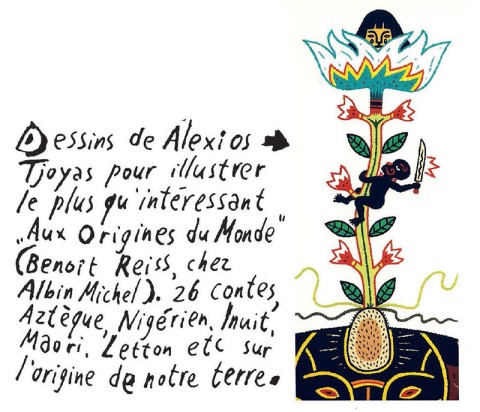 Dessins de Alexios →
Tjoyas pour illustrer
le plus qu'intéressant
„Aux Origines du Monde"
(Benoît Reiss, chez
Albin Michel). 26 contes,
Aztèque, Nigérien, Inuit,
Maori, Letton etc sur
l'origine de notre terre.